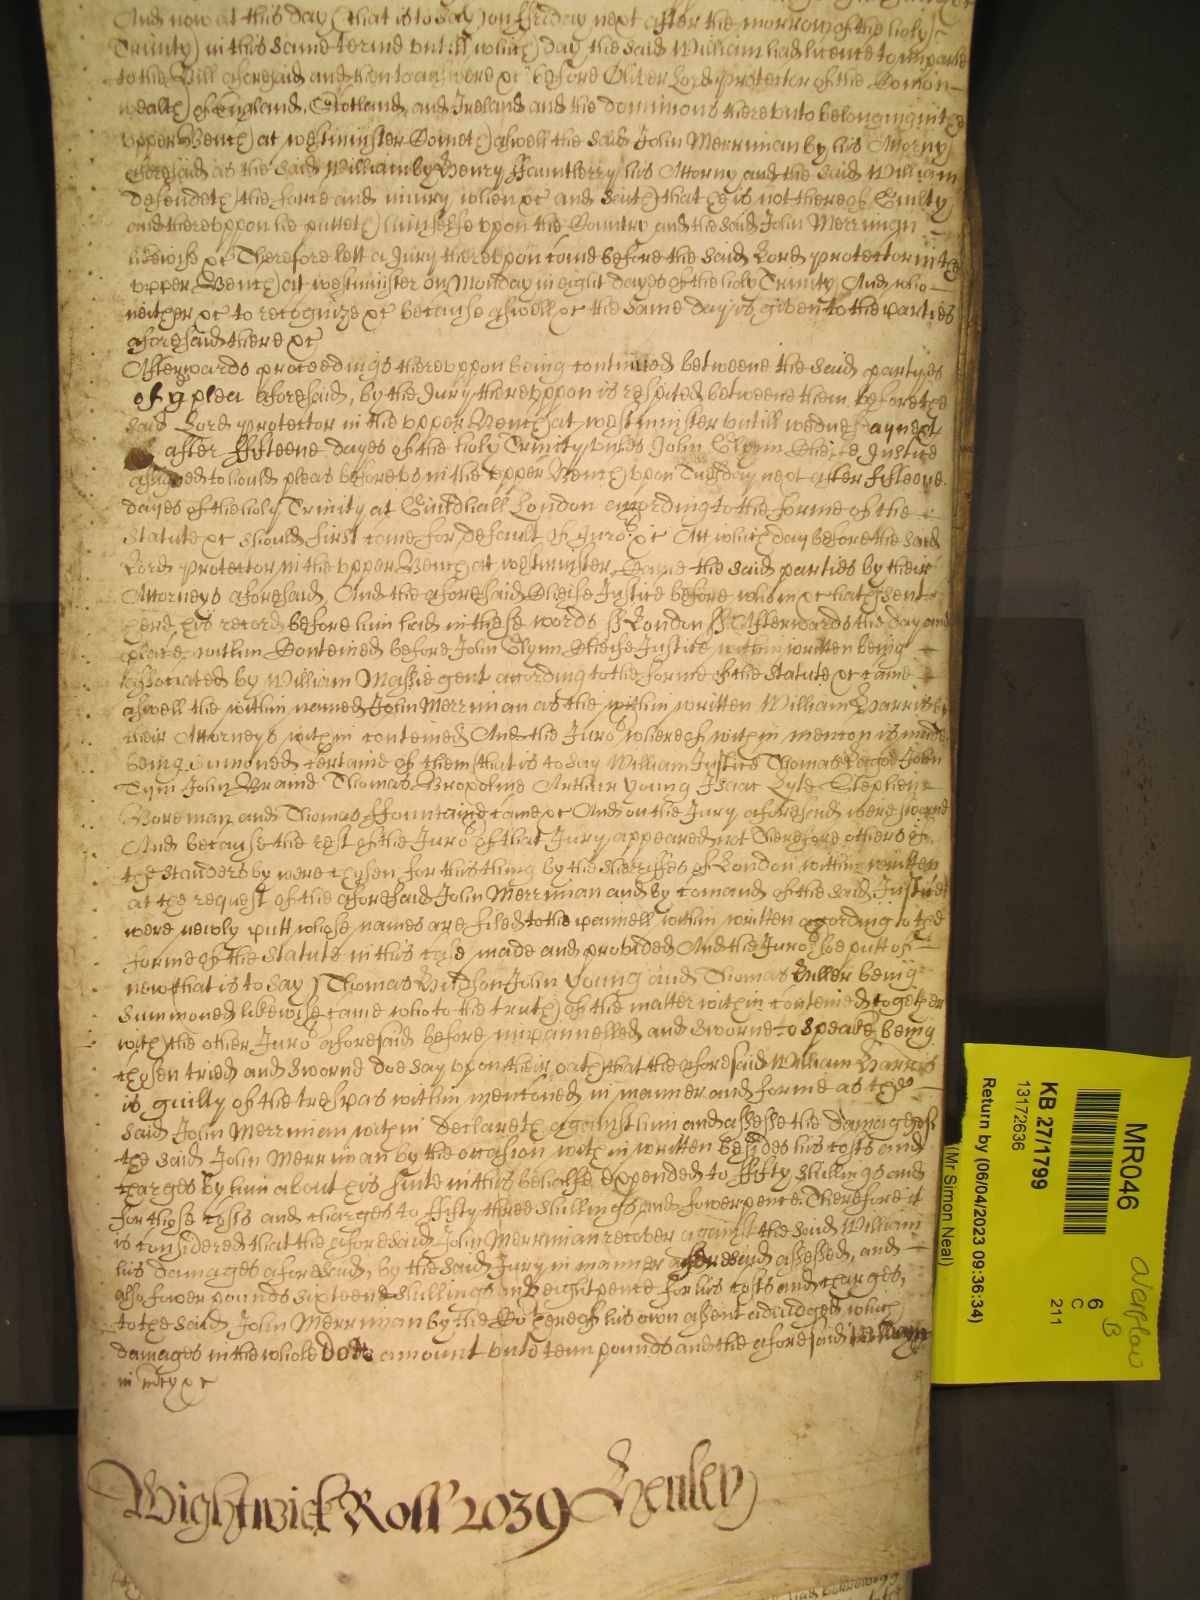 And now at this day (that is to say) on ffriday next after the morrow of the holy
Trinity) in this same terme untill which day the said William had licence to imparle
to the Bill aforesaid and then to answere &c before Oliver Lord Protector of the Comon-
wealth of England, Scotland, and Ireland and the dominions thereunto belonging in the
upper Bench at westminster Cometh aswell the said John Merriman by his Attorny
aforesaid as the said William by Henry ffauntlerry his Attorny and the said William
defendeth the force and iniury when &c and saith that he is not thereof Guilty
and thereuppon he putteth himselfe upon the Country and the said John Merriman
likewise &c Therefore lett a Jury thereupon come before the said Lord Protector in the
upper Bench at westminster on Monday in eight dayes of the holy Trinity And who
neither &c to recognize &c because aswell &c the same day is given to the parties
aforesaid there &c
Afterwards proceedings thereuppon being continued betweene the said partyes
of ye plea aforesaid, by the Jury thereuppon is respited betweene them before the
said Lord Protector in the upper Bench at westminster untill wednesday next
after ffifteene dayes of the holy Trinity unles John Glynn Cheife Justice
assigned to hould pleas before us in the upper Bench upon Tuesday next after fifteene
dayes of the holy Trinity at Guildhall London according to the forme of the
Statute &c should first come for default of Juro &c Att which day before the said
Lord Protector in the upper Bench at westminster Came the said parties by their
Attorneys aforesaid, And the aforesaid Cheife Justice before whom &c hath sent
here his record before him had in these words ss London ss Afterwards the day and
place within Conteined before John Glynn Cheife Justice within written being
associated by William Massie gent according to the forme of the Statute &c came
aswell the within named John Merriman as the within written William Harris by
their Attorneys within conteined And the Juro whereof within mencon is made
being sumoned certaine of them (that is to say William Justice Thomas John
Tym John Braind Thomas Bropoline Arthur Young Isaac Lyle Stephen
Boreman and Thomas ffountaine came &c And on the Jury aforesaid were sworne
And because the rest of the Juro of that Jury appeared not Therefore others of
the standers by were chosen for this thing by the Sherriffes of London within written
at the request of the aforesaid John Merriman and by comand of the said Justice
were newly putt whose names are filed to the pannell within written according to the
forme of the Statute in this case made and provided And the Juro soe putt of
new that is to say) Thomas Hudson John Young and Thomas Fuller being
summoned likewise came who to the truth of the matter within conteined together
with the other Juro aforesaid before impannelled and sworne to speake being
chosen tried and sworne doe say upon their oath that the aforesaid William Harris
is guilty of the trespas within mentoned in manner and forme as the
said John Merriman within declareth against him and assesse the damages of
the said John Merriman by the occasion within written besides his costs and
charges by him about his suite in this behalfe expended to ffifty shillings and
for those costs and charges to ffifty three shillings and fower pence Therefore it
is considered that the aforesaid John Merriman recover against the said William
his damages aforesaid, by the said Jury in manner aforesaid assessed, and
also fower pounds sixteene shillings and eight pence for his costs and charges,
to the said John Merriman by the Co here of his own assent adiudged which
damages in the whole doth amount unto tenn pounds and the aforesaid William
in mcy &c
Wightwick Roll 2039 Henley
MR046
6
C
211
KB 27/1799
13172636
Return by (06/04/2023 09:36:34)
(Mr Simon Neal)